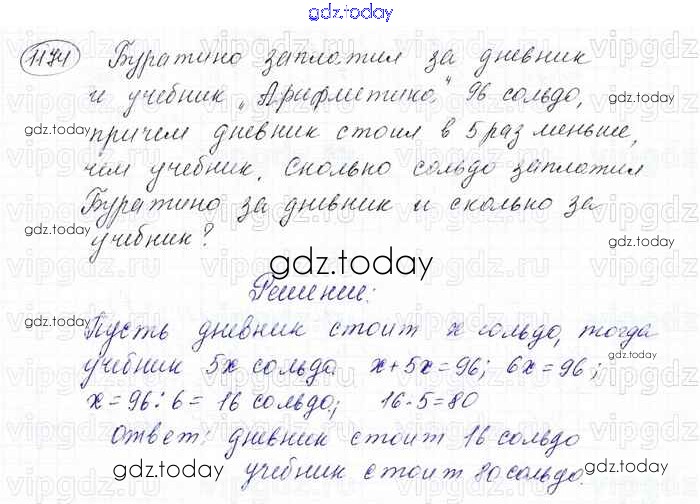 gdz.today
1174 Буратино заплатил за дневник
и учебник „Арифметика" 96 сольдо,
gdz.today
причем дневник стоил в 5 раз меньше,
чем учебник. Сколько сольдо заплатил
Буратино за дневник и сколько за
gdz.today
учебник?
gdz.today
Решение:
Пусть дневник стоит x сольдо, тогда
учебник 5x сольдо x+5x=96; 6x=96;
gdz.today
x=96:6= 16 сольдо; 16·5=80
Ответ: дневник стоит 16 сольдо
gdz.today
gdz.today
учебник стоит 80 сольдо.